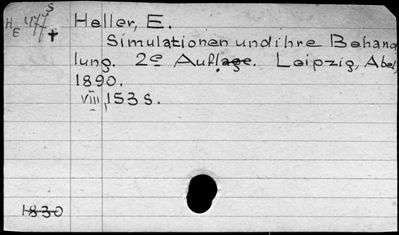 HE 477 S
Heller, E.
Simulationen und ihre Behand
lung. 2e Auflage. Leipzig, Abel,
1890.
viii, 153 s.
1830